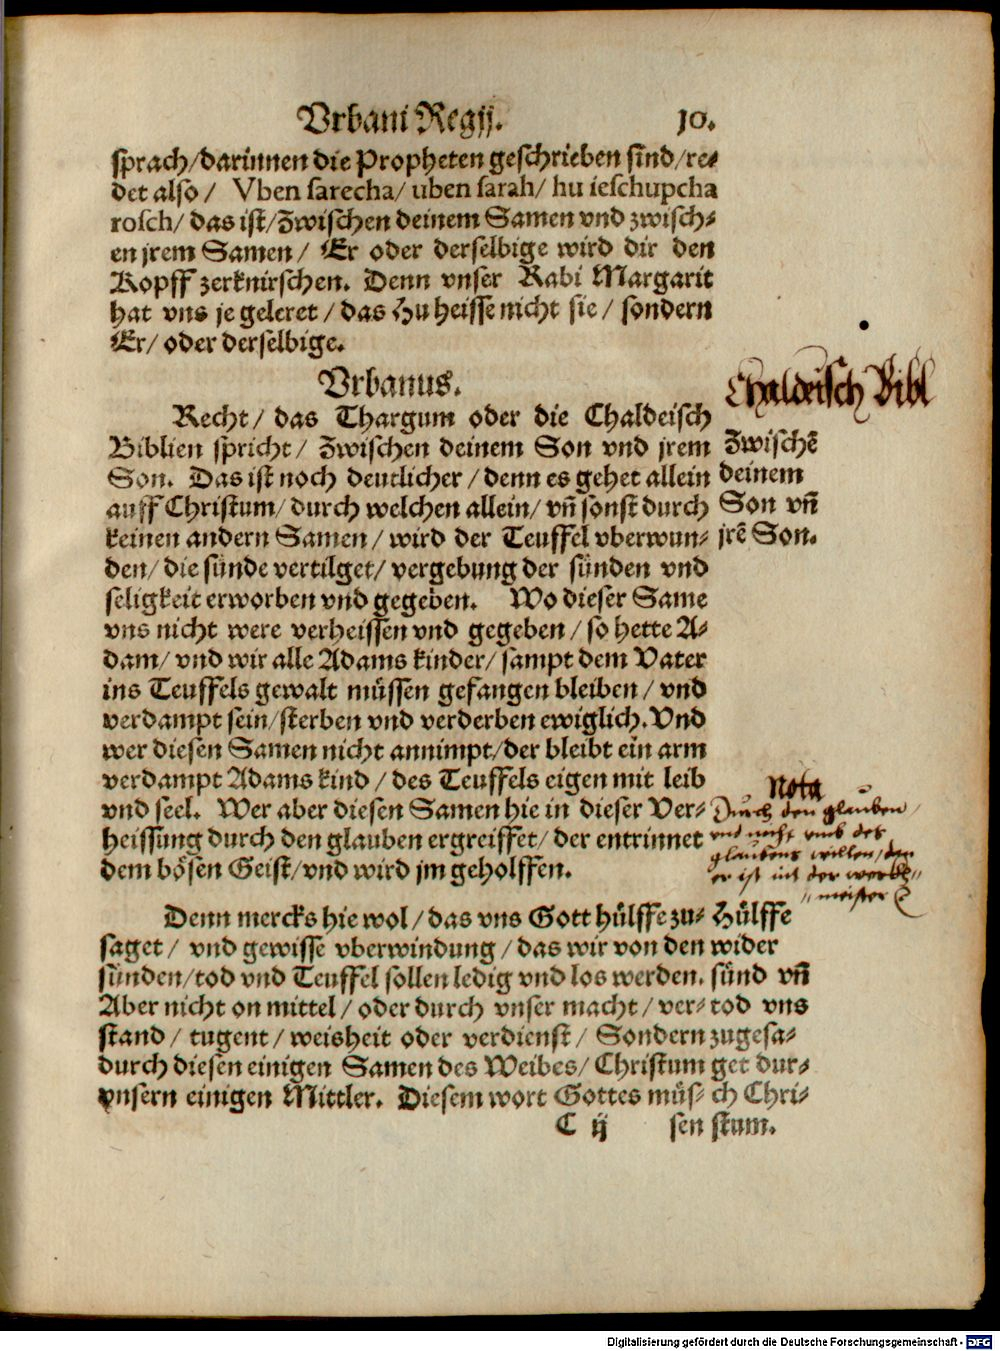 Vrbani Regij. 10.
sprach/darinnen die Propheten geschrieben sind/re-
det also/ Vben sarecha/ uben sarah/ hu ieschupcha
rosch/ das ist/Zwischen deinem Samen vnd zwisch-
en jrem Samen/ Er oder derselbige wird dir den
Kopff zerknirschen. Denn vnser Rabi Margarit
hat vns je geleret/das Hu heisse nicht sie/ sondern
Er/ oder derselbige.
Vrbanus.
Recht/ das Thargum oder die Chaldeisch
Biblien spricht/ Zwischen deinem Son vnd jrem
Son. Das ist noch deutlicher/denn es gehet allein
auff Christum/durch welchen allein/vñ sonst durch
keinen andern Samen/wird der Teuffel vberwun-
den/die sünde vertilget/vergebung der sünden vnd
seligkeit erworben vnd gegeben. Wo dieser Same
vns nicht were verheissen vnd gegeben/so hette A-
dam/vnd wir alle Adams kinder/sampt dem Vater
ins Teuffels gewalt müssen gefangen bleiben/vnd
verdampt sein/sterben vnd verderben ewiglich. Vnd
wer diesen Samen nicht annimpt/der bleibt ein arm
verdampt Adams kind/des Teuffels eigen mit leib
vnd seel. Wer aber diesen Samen hie in dieser Ver-
heissung durch den glauben ergreiffet/der entrinnet
dem bösen Geist/vnd wird jm geholffen.
Denn mercks hie wol/das vns Gott hülffe zu-
saget/ vnd gewisse vberwindung/das wir von den
sünden/tod vnd Teuffel sollen ledig vnd los werden.
Aber nicht on mittel/oder durch vnser macht/ver-
stand/tugent/weisheit oder verdienst/ Sondern
durch diesen einigen Samen des Weibes/Christum
vnsern einigen Mittler. Diesem wort Gottes müs-
C ij sen
Chaldeisch Bibl
Zwischẽ
deinem
Son vñ
jrẽ Son.
Nota
Durch den glauben/
vnd nicht vmb des
glaubens willen/den
er ist nit der werck//
//meister
Hülffe
wider
sünd vñ
tod vns
zugesa-
get dur-
ch Chri-
stum.
Digitalisierung gefördert durch die Deutsche Forschungsgemeinschaft - DFG